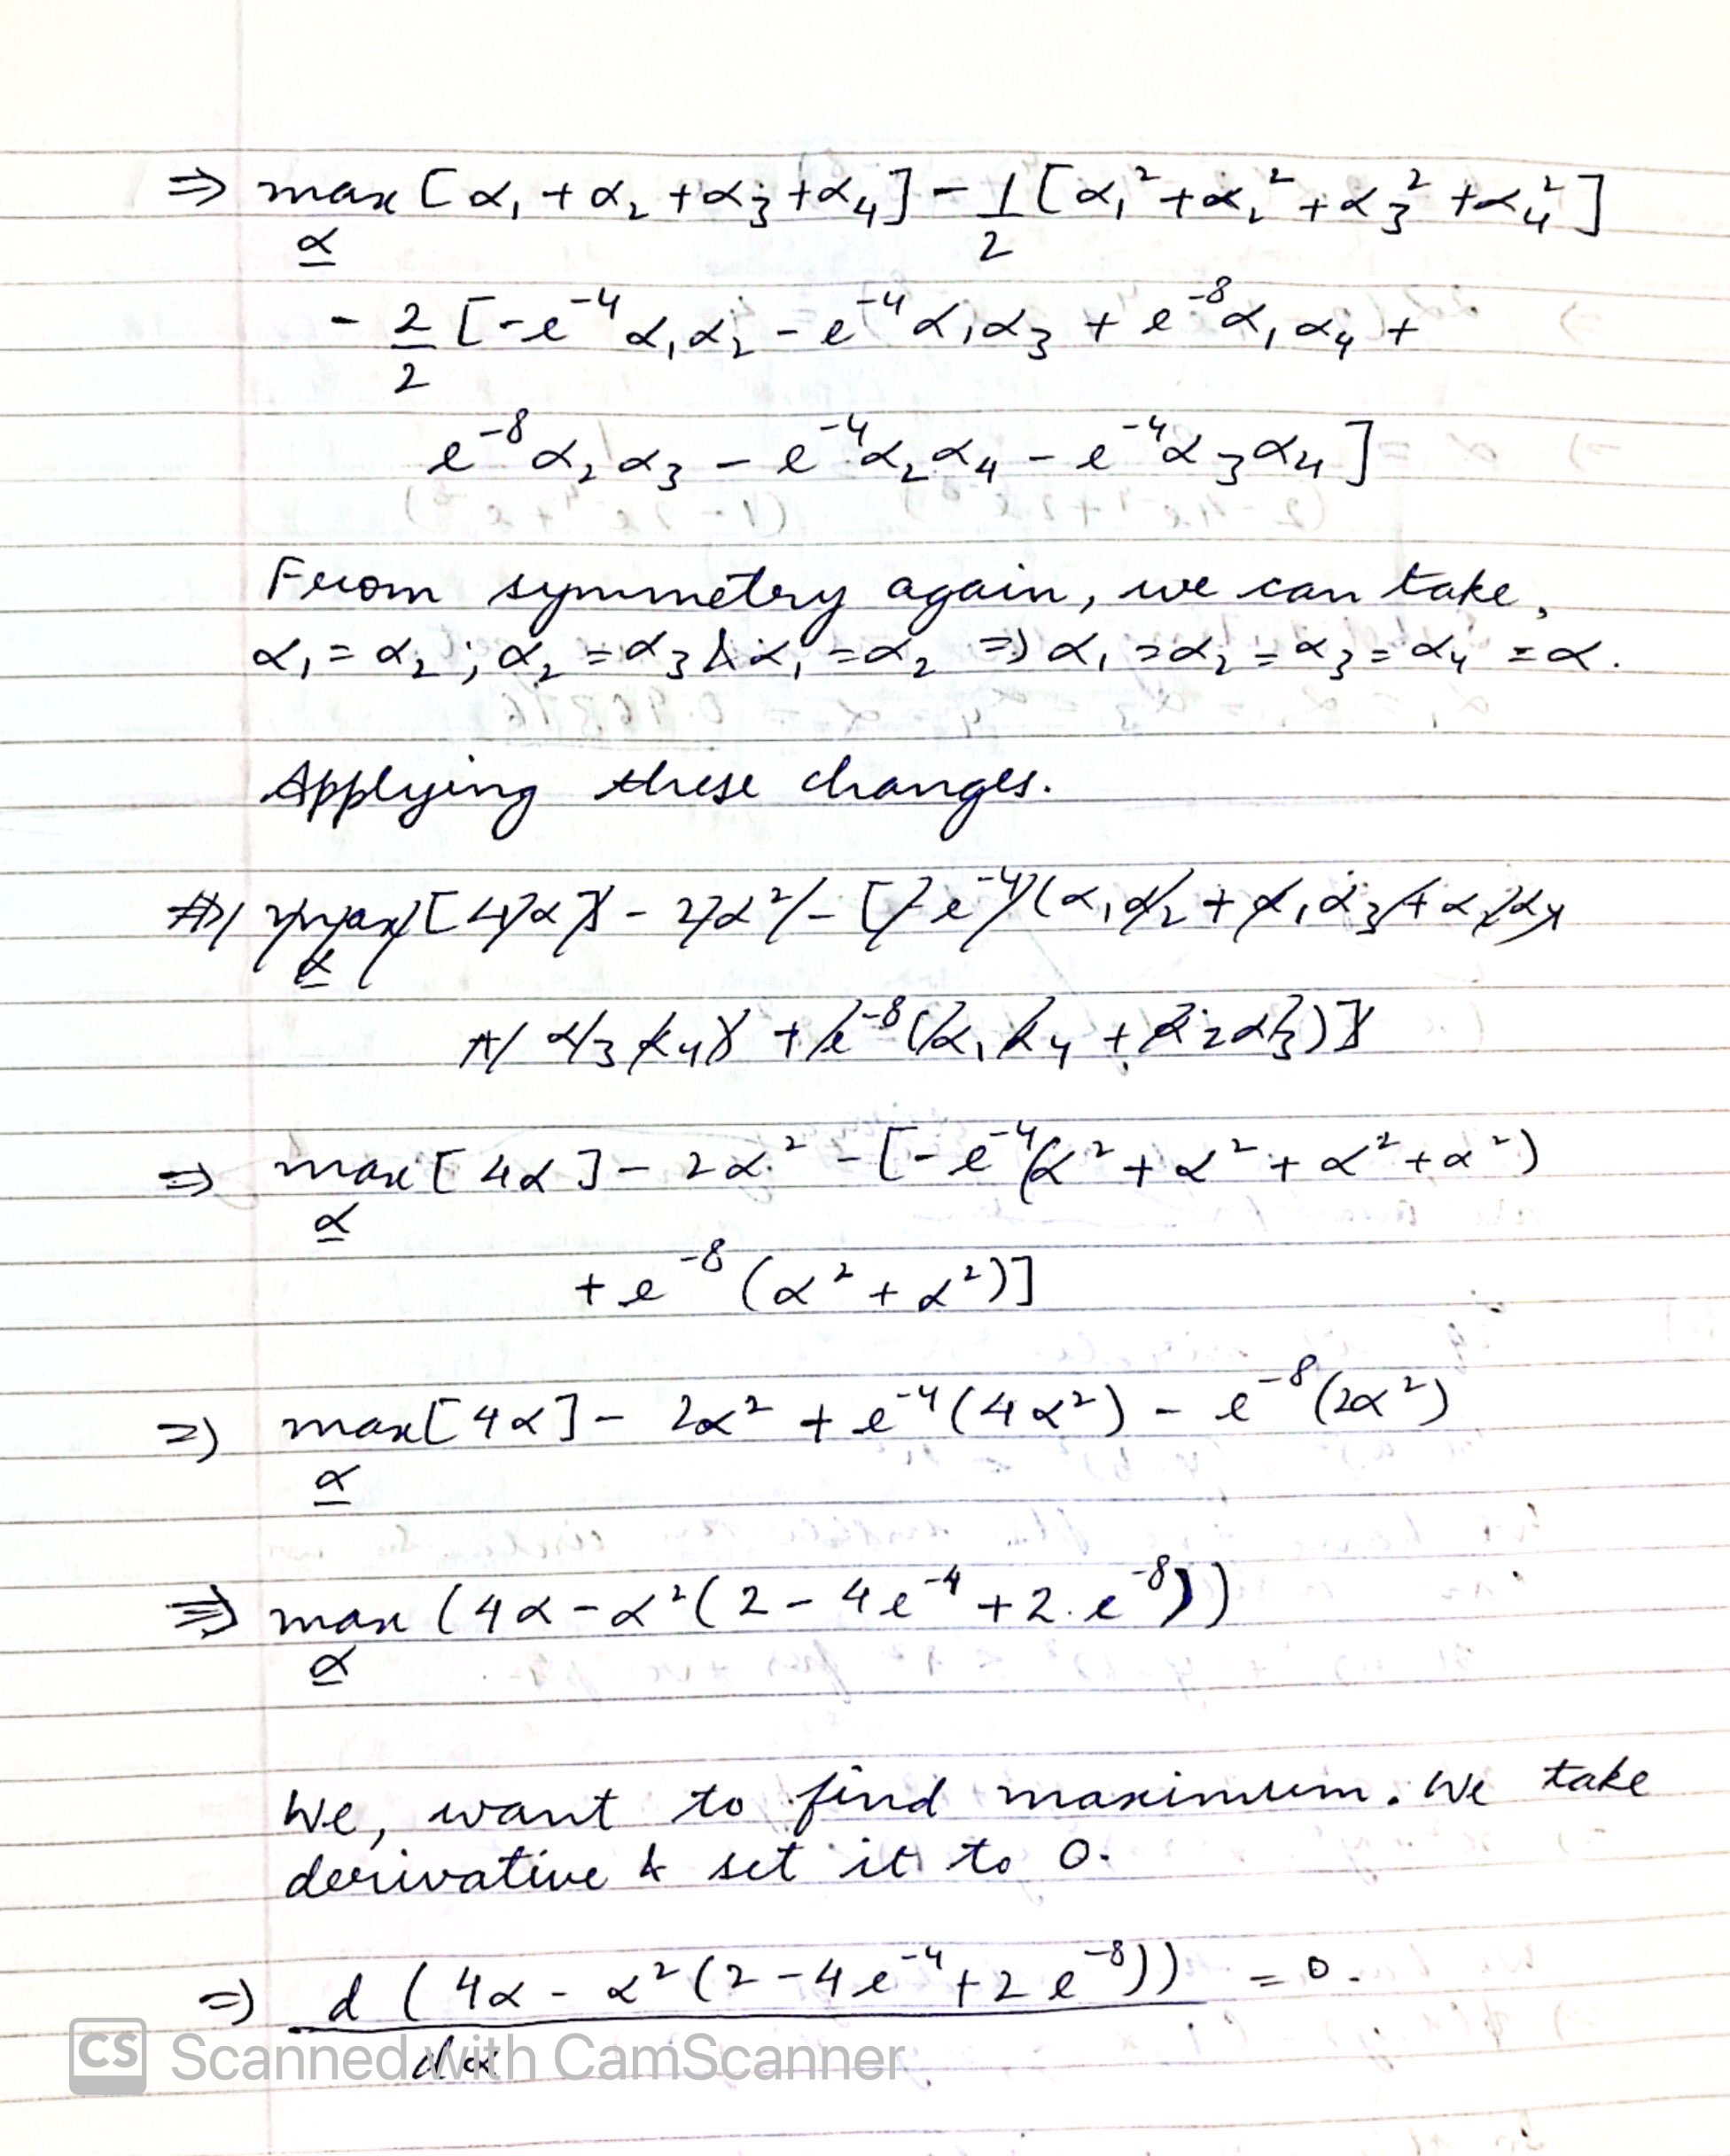 ⇒ max [α₁ + α₂ + α₃ + α₄] - 1/2 [α₁² + α₂² + α₃² + α₄²]
α
- 2/2 [-e⁻⁴ α₁α₂ - e⁻⁴ α₁α₃ + e⁻⁸ α₁α₄ +
e⁻⁸ α₂α₃ - e⁻⁴ α₂α₄ - e⁻⁴ α₃α₄]
From symmetry again, we can take,
α₁ = α₂ ; α₂ = α₃ & α₁ = α₂ ⇒ α₁ = α₂ = α₃ = α₄ = α.
Applying these changes.
⇒ max [4α] - 2α² - [-e⁻⁴(α₁α₂ + α₁α₃ + α₂α₄
α
+ α₃α₄) + e⁻⁸(α₁α₄ + α₂α₃)]
⇒ max [4α] - 2α² - [-e⁻⁴(α² + α² + α² + α²)
α
+ e⁻⁸(α² + α²)]
⇒ max [4α] - 2α² + e⁻⁴(4α²) - e⁻⁸(2α²)
α
⇒ max (4α - α²(2 - 4e⁻⁴ + 2.e⁻⁸))
α
We, want to find maximum. We take
derivative & set it to 0.
⇒ d (4α - α²(2 - 4e⁻⁴ + 2e⁻⁸)) = 0.
dα
CS Scanned with CamScanner